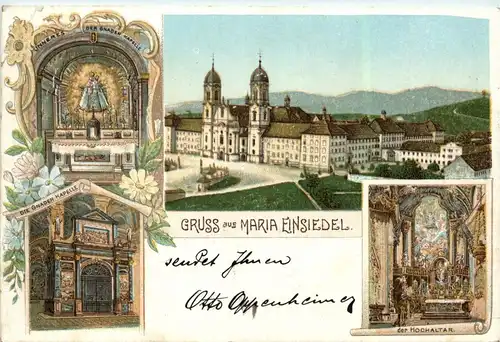 INNERES DER GNADEN KAPELLE
DIE GNADEN KAPELLE
GRUSS aus MARIA EINSIEDEL.
sendet Ihnen
Otto Oppenheimer
der HOCHALTAR.